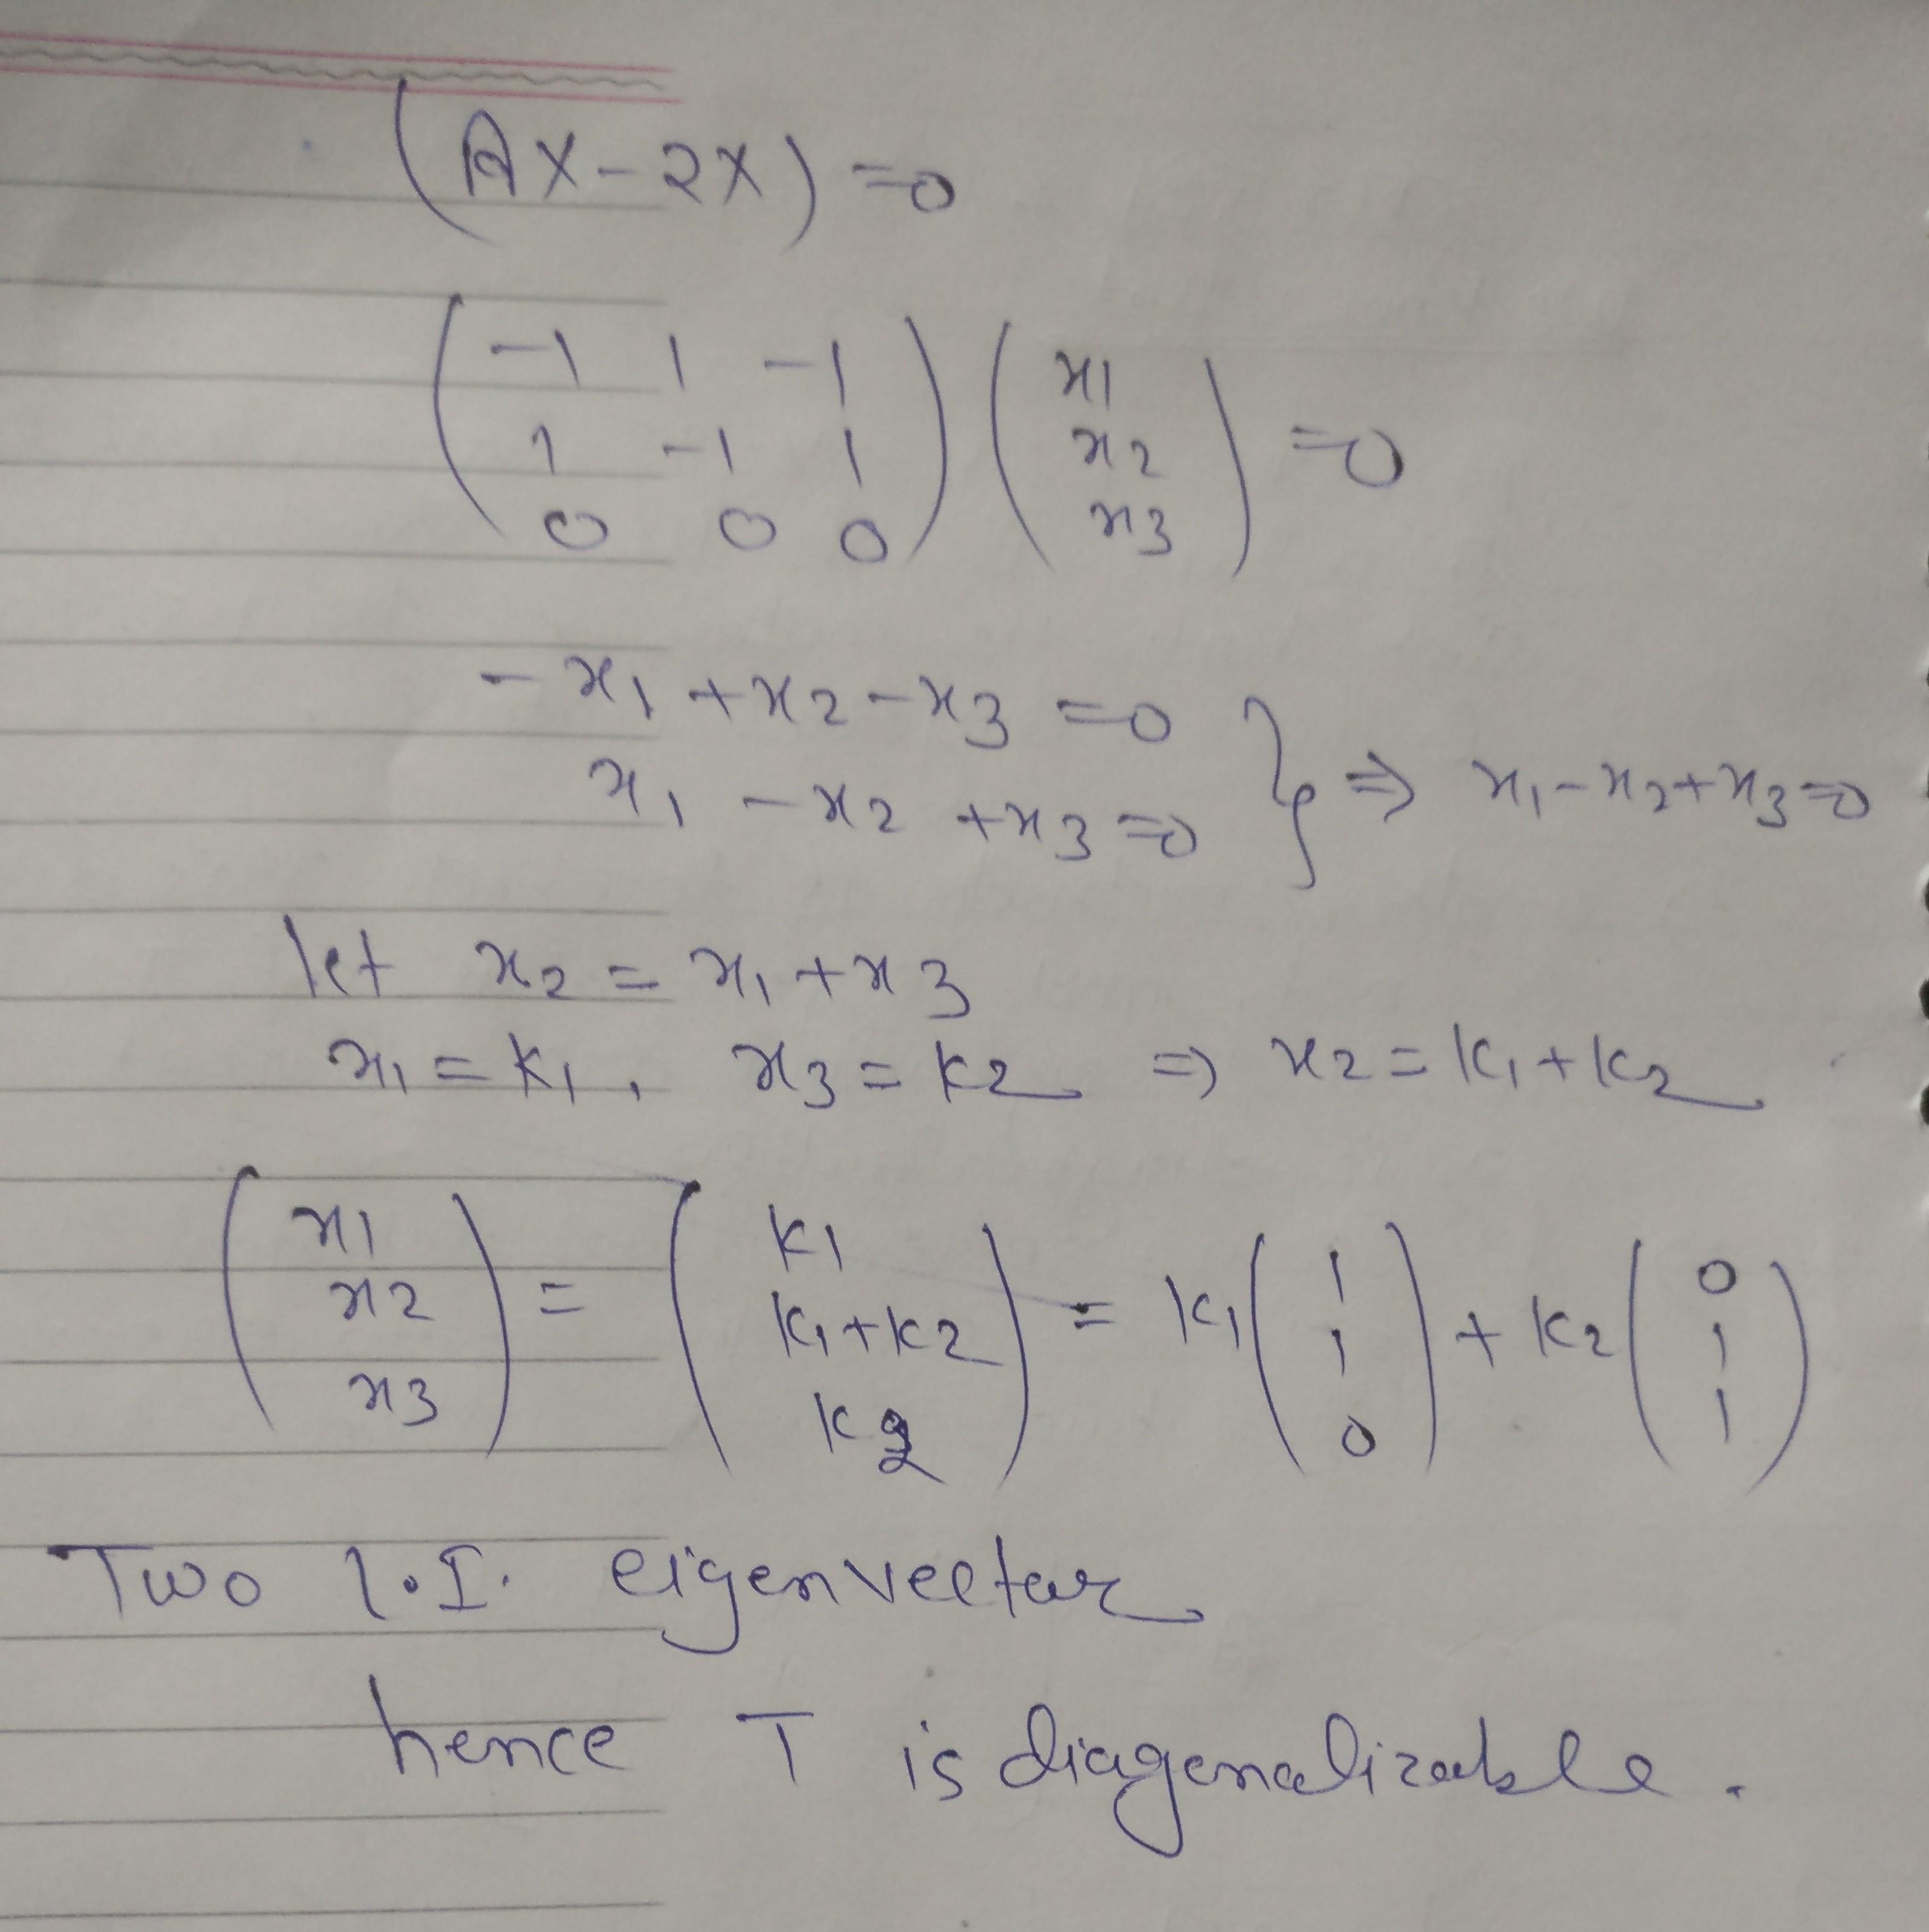 (AX-2X)=0
( -1 1 -1 ) ( x1 )
( 1 -1 1 ) ( x2 ) =0
( 0 0 0 ) ( x3 )
-x1+x2-x3=0
x1-x2+x3=0 } ⇒ x1-x2+x3=0
let x2=x1+x3
x1=k1, x3=k2 ⇒ x2=k1+k2
( x1 ) ( k1 ) ( 1 ) ( 0 )
( x2 ) = ( k1+k2 ) = k1 ( 1 ) + k2 ( 1 )
( x3 ) ( k2 ) ( 0 ) ( 1 )
Two l.I. eigenvector
hence T is diagonalizable.